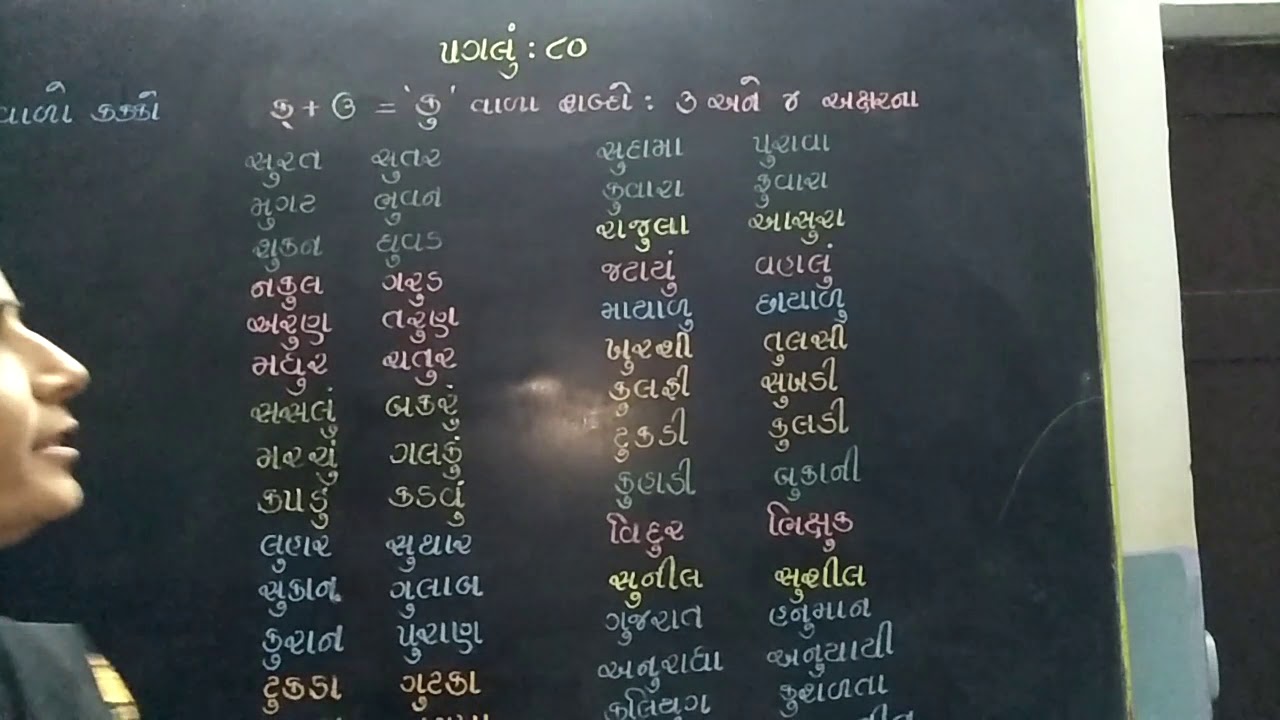 પગલું : ૮૦
વાળો કક્કો
ક્ + ઉ = 'કુ' વાળા શબ્દો : ૩ અને ૪ અક્ષરના
સુરત સુતર સુદામા પુરાવા
મુગટ ભુવન કુવારા ફુવારા
શુકન ઘુવડ રાજુલા આસુરા
નકુલ ગરુડ જટાયું વહાલું
અરુણ તરુણ માયાળુ છાયાળુ
મધુર ચતુર ખુરશી તુલસી
સસલું બકરું કુલફી સુખડી
મરચું ગલકું ટુકડી કુલડી
કપડું કડવું કુહાડી બુકાની
લુહાર સુથાર વિદુર ભિક્ષુક
સુકાન ગુલાબ સુનીલ સુશીલ
કુરાન પુરાણ ગુજરાત હનુમાન
ટુકડા ગુટકા અનુરાધા અનુયાયી
કલિયુગ કુશળતા